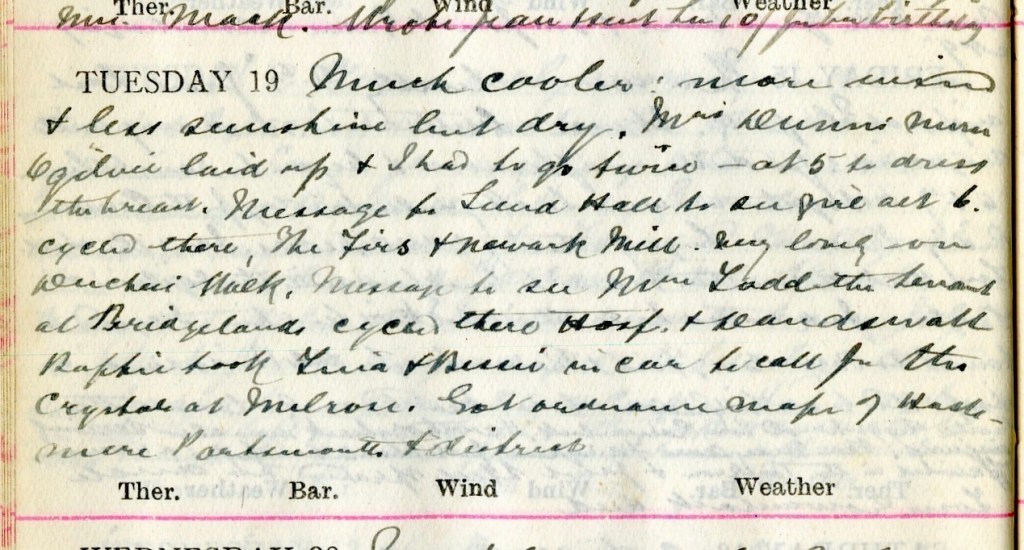 Ther. Bar. Wind Weather
Mrs Mack. Wrote Jean sent her 10/ for her birthday
TUESDAY 19 Much cooler: more wind
& less sunshine but dry. Mrs Dunn's nurse
Ogilvie laid up & I had to go twice — at 5 to dress
the breast. Message to Lund Hall to see girl at 6.
cycled there, The Firs & Newark Mill. very lovely on
Duchess Walk. Message to see Mrs Ladd the tenant
at Bridgelands cycled there Hosp. &
took Tina & Bessie in car to call for the
Crystals at Melrose. Got ordnance maps of Hasle-
mere Portsmouth & district
Ther. Bar. Wind Weather
WEDNESDAY 20